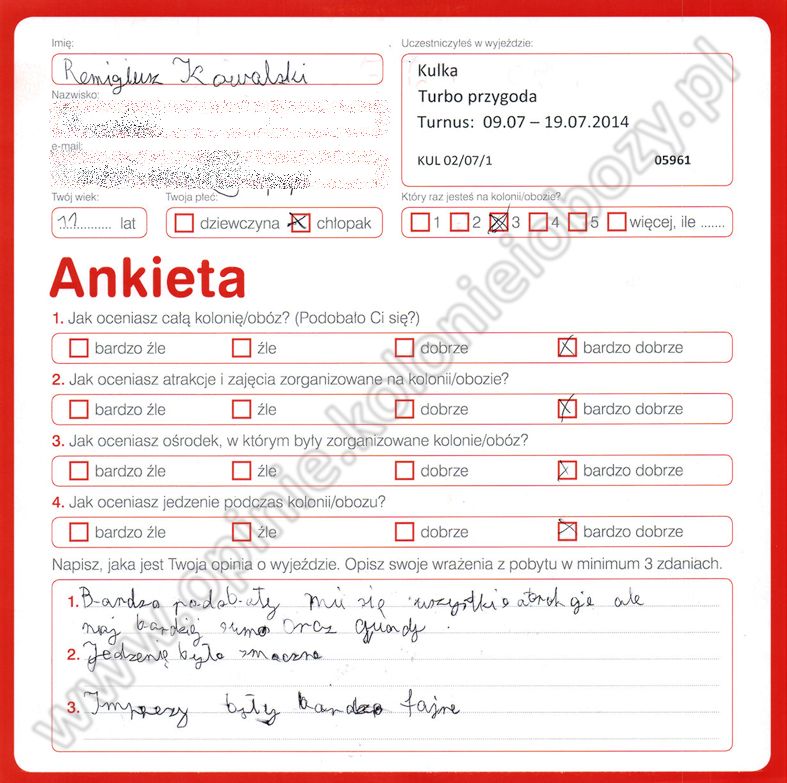 Imię:
Remigiusz Kowalski
Nazwisko:
e-mail:
Twój wiek:
11 lat
Twoja płeć:
dziewczyna chłopak
Uczestniczyłeś w wyjeździe:
Kulka
Turbo przygoda
Turnus: 09.07 – 19.07.2014
KUL 02/07/1 05961
Który raz jesteś na kolonii/obozie?
1 2 3 4 5 więcej, ile .......
Ankieta
1. Jak oceniasz całą kolonię/obóz? (Podobało Ci się?)
bardzo źle źle dobrze bardzo dobrze
2. Jak oceniasz atrakcje i zajęcia zorganizowane na kolonii/obozie?
bardzo źle źle dobrze bardzo dobrze
3. Jak oceniasz ośrodek, w którym były zorganizowane kolonie/obóz?
bardzo źle źle dobrze bardzo dobrze
4. Jak oceniasz jedzenie podczas kolonii/obozu?
bardzo źle źle dobrze bardzo dobrze
Napisz, jaka jest Twoja opinia o wyjeździe. Opisz swoje wrażenia z pobytu w minimum 3 zdaniach.
1. Bardzo podobały mi się wszystkie atrakcje ale
naj bardziej sumo oraz quady.
2. Jedzenię było smaczne
3. Imprezy były bardzo fajne
www.opinie.kolonieiobozy.pl